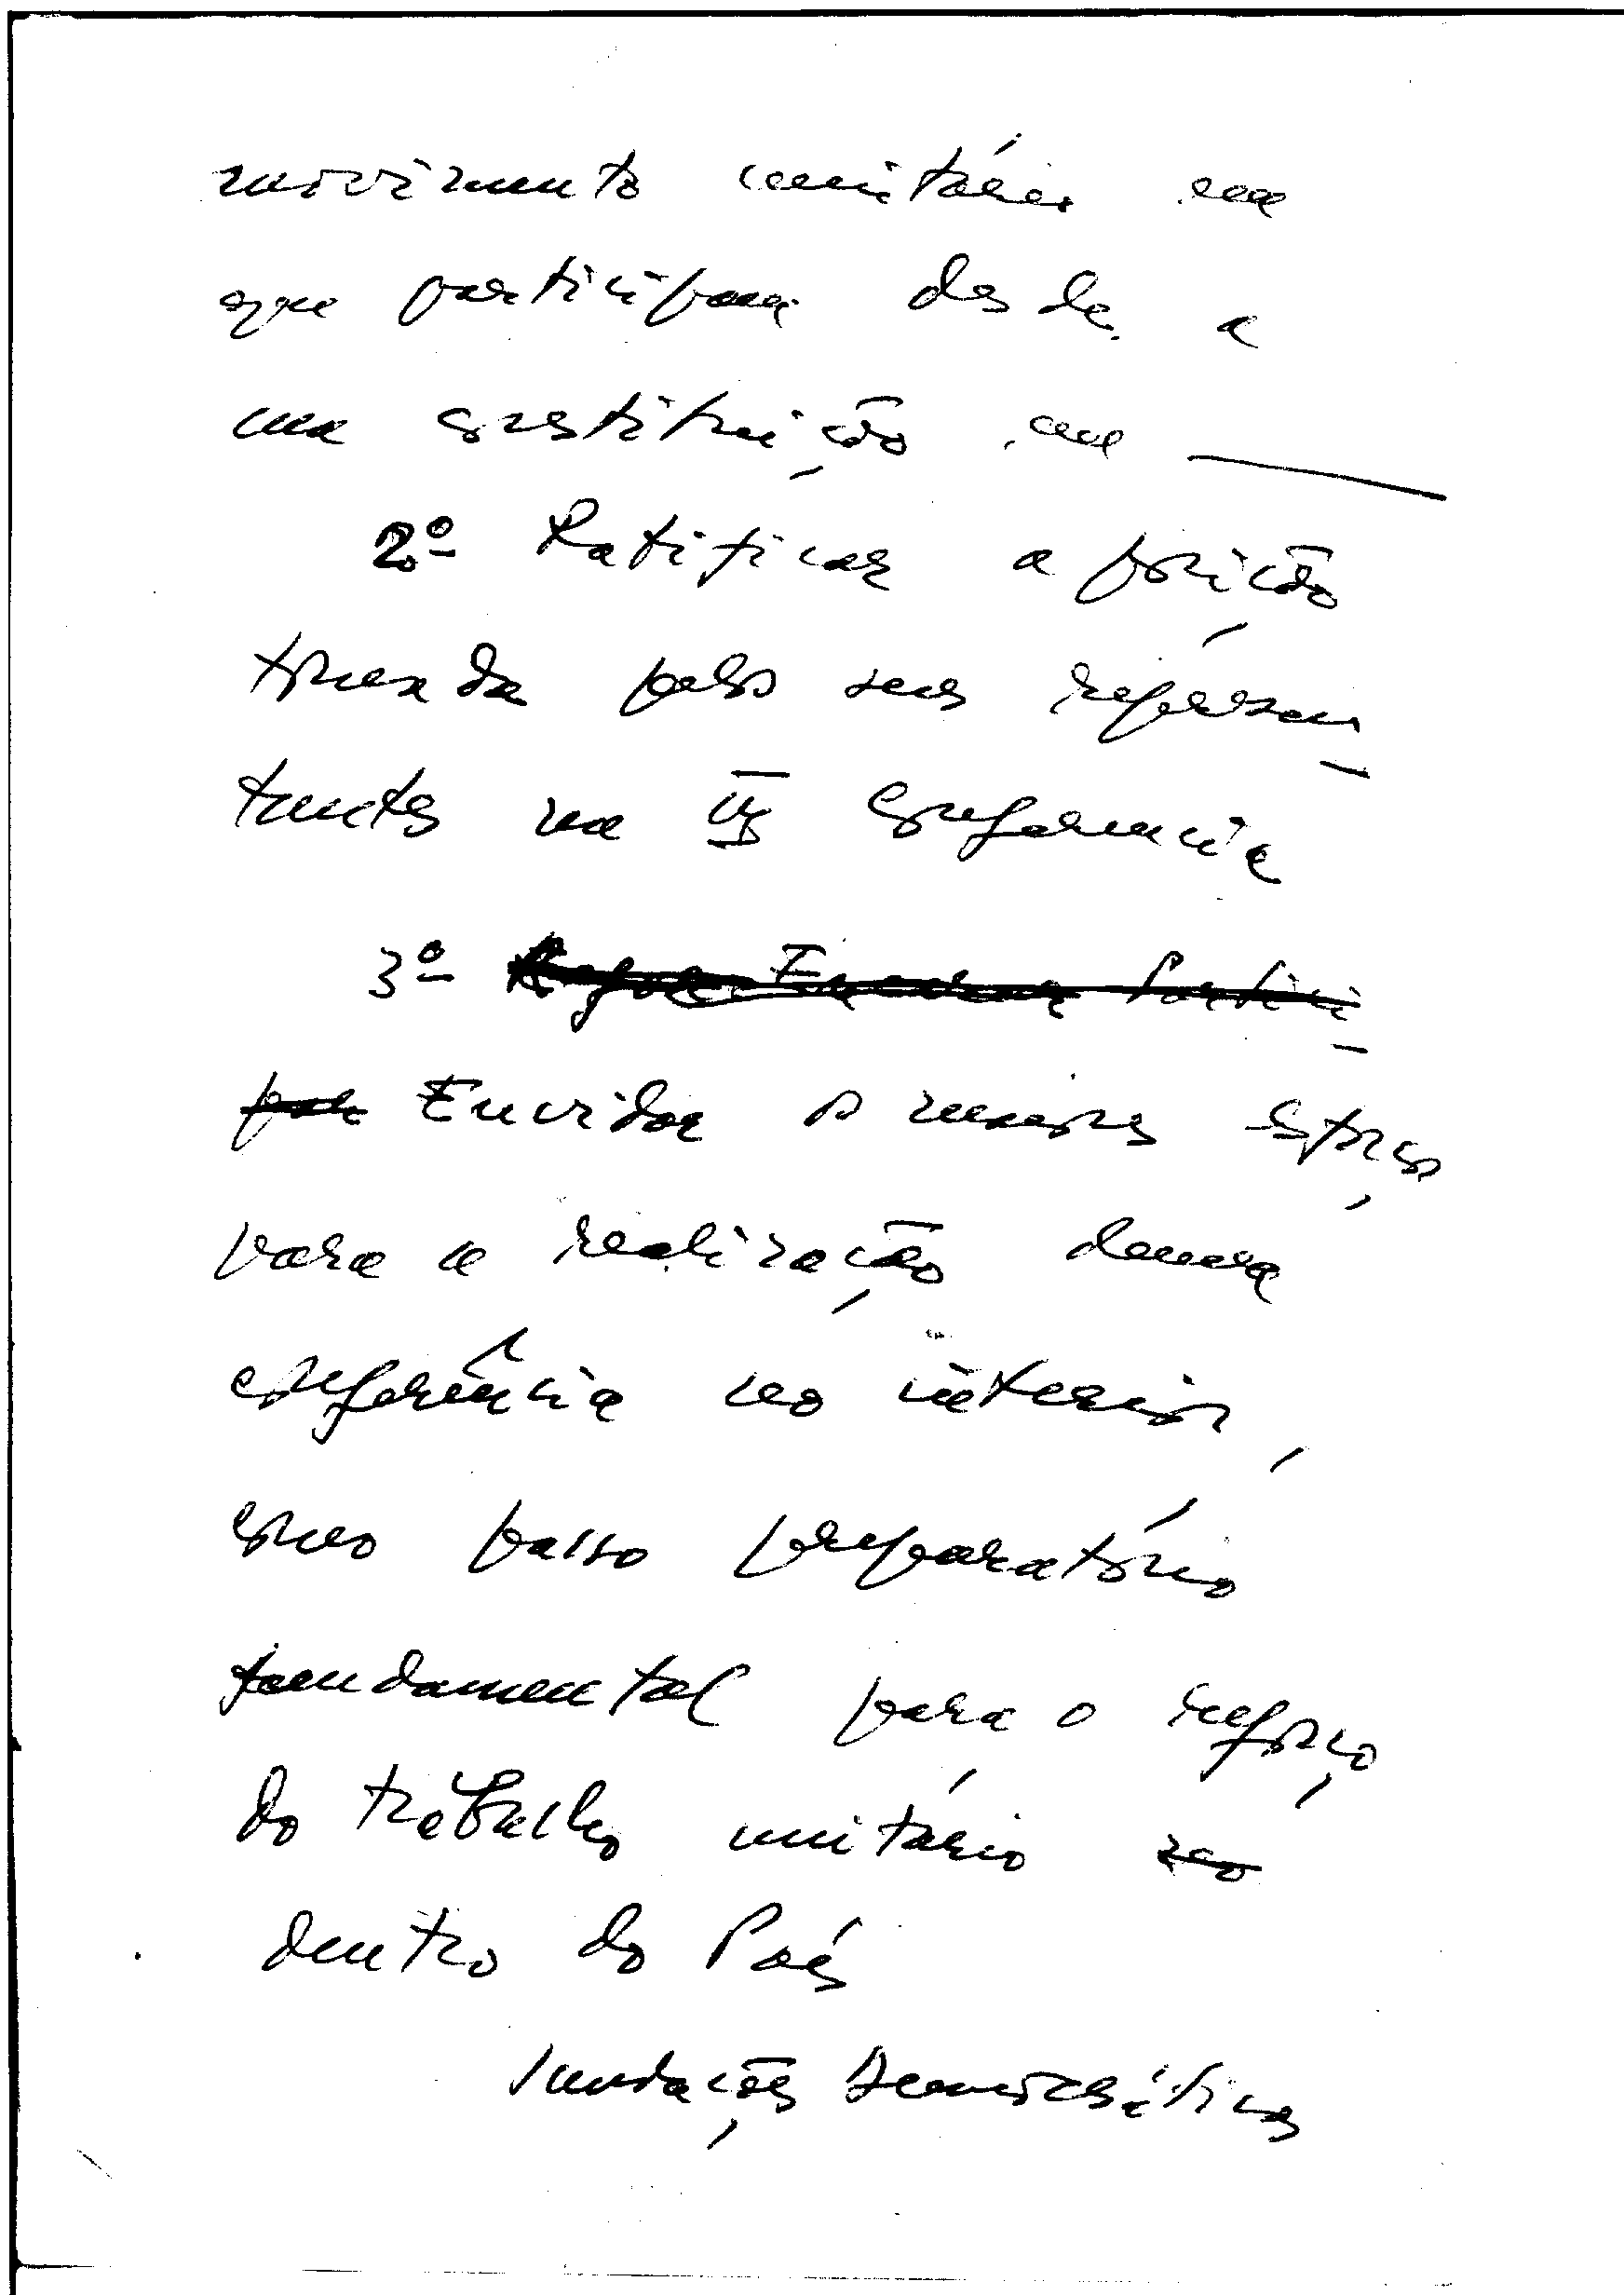 movimento unitário em
que participam desde a
sua constituição em ____
2º Ratificar a posição
tomada pelos seus represen-
tantes na III Conferencia
3º Partici-
par Envidar os maiores esforços
para a realização duma
conferência no interior,
como passo preparatório
fundamental para o reforço
do trabalho unitário no
dentro do País
Saudações Democráticas